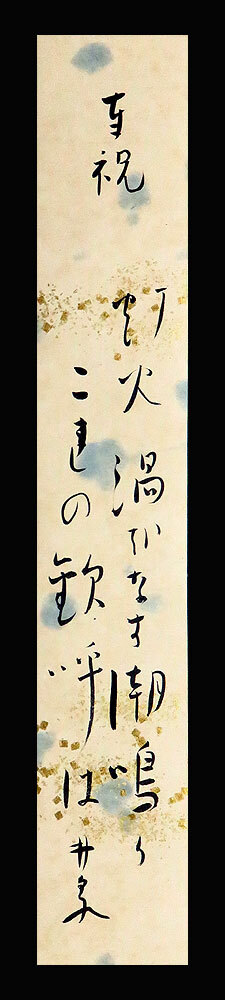 奉祝
灯火渦おなす潮鳴り
これの歓呼は
井泉